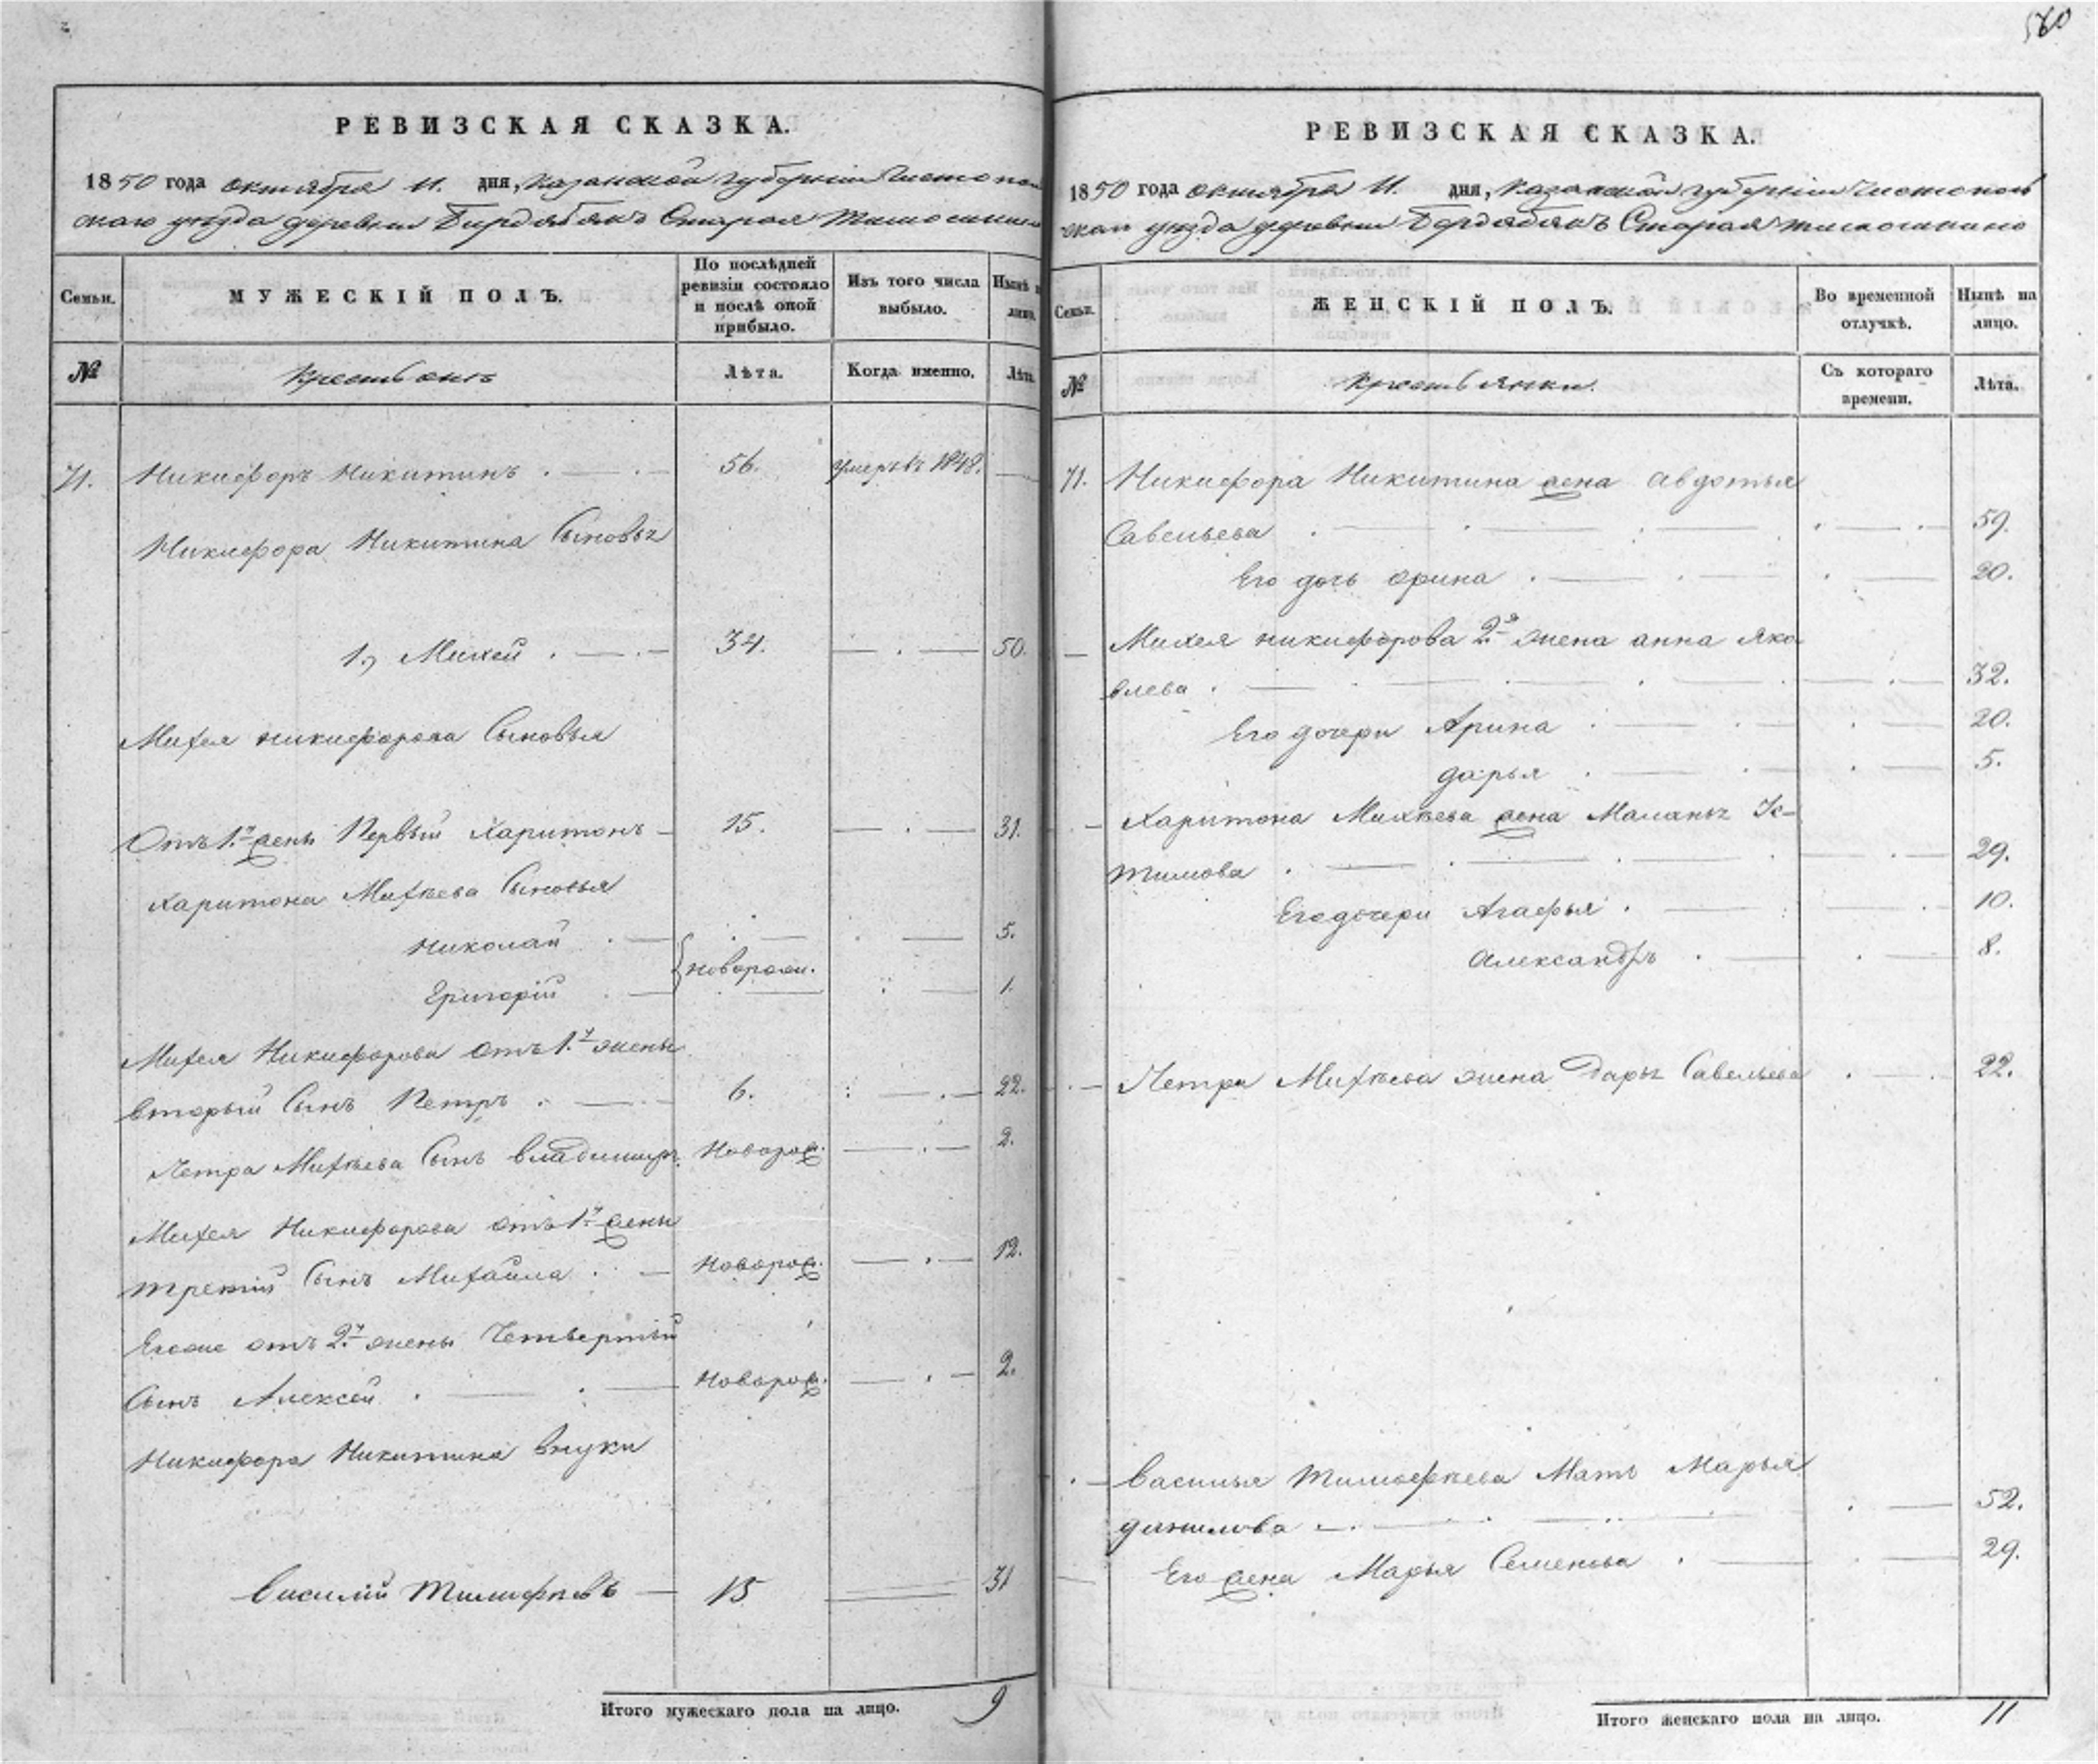 580
РЕВИЗСКАЯ СКАЗКА.
1850 года октября 11. дня, Казанской губернии Чистополь
скаго уезда деревни Бирдябякъ Старая
Семьи.
МУЖЕСКІЙ ПОЛЪ.
По послѣдней ревизіи состояло и послѣ оной прибыло.
Изъ того числа выбыло.
Нынѣ на лицо.
№
Крестьянъ
Лѣта.
Когда именно.
Лѣта.
71. Никифоръ Никитинъ 56. умеръ въ 1848.
Никифора Никитина Сыновья
1, Михей 34. 50.
Михея Никифорова Сыновья
Отъ 1й жены Первый Харитонъ 15. 31.
Харитона Михѣева Сыновья
Николай 5.
новорожд.
Григорій 1.
Михея Никифорова отъ 1й жены
вторый Сынъ Петръ 6. 22.
Петра Михѣева Сынъ Владимиръ Новорож. 2.
Михея Никифорова отъ 1й жены
третій Сынъ Михайла Новорож. 12.
Егоже отъ 2й жены Четвертый
Сынъ Алексей Новорож. 2.
Никифора Никитина внуки
Василій Тимофѣевъ 15 31
Итого мужескаго пола на лицо. 9
РЕВИЗСКАЯ СКАЗКА.
1850 года октября 11. дня, Казанской губерніи Чистополь
скаго уезда деревни Бердябякъ Старая
Семьи.
ЖЕНСКІЙ ПОЛЪ.
Во временной отлучкѣ.
Нынѣ на лицо.
№
Крестьянки.
Съ котораго времени.
Лѣта.
71. Никифора Никитина жена Авдотья
Савельева 59.
Его дочь Орина 20.
Михея Никифорова 2я жена Анна Яко
влева 32.
Его дочери Арина 20.
Дарья 5.
Харитона Михѣева жена Маланья
29.
Его дочери Агафья 10.
Александръ 8.
Петра Михѣева жена Дарья Савельева 22.
Василья Тимофѣева Мать Марья
Данилова 52.
Его жена Марья Семенова 29.
Итого женскаго пола на лицо. 11